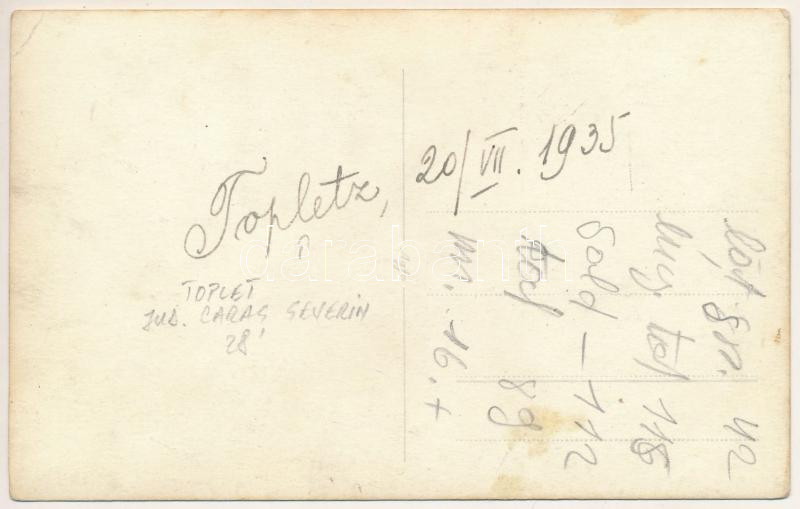 Topletz, 20/VII. 1935
TOPLET
JUD. CARAS SEVERIN
28
8 sz. 42
tof 118
Gold - 112
tof 89
16. +
darabanth